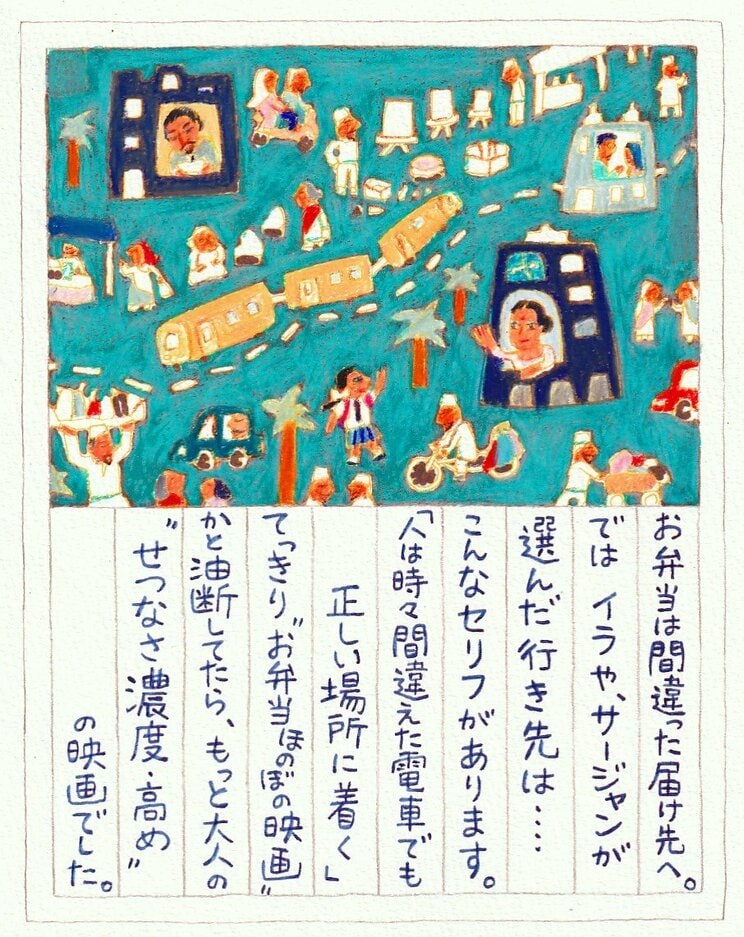 お弁当は間違った届け先へ。
では イラや、サージャンが
選んだ行き先は‥‥
こんなセリフがあります。
「人は時々間違えた電車でも
正しい場所に着く」
てっきり"お弁当ほのぼの映画"
かと油断してたら、もっと大人の
"せつなさ濃度・高め"
の映画でした。